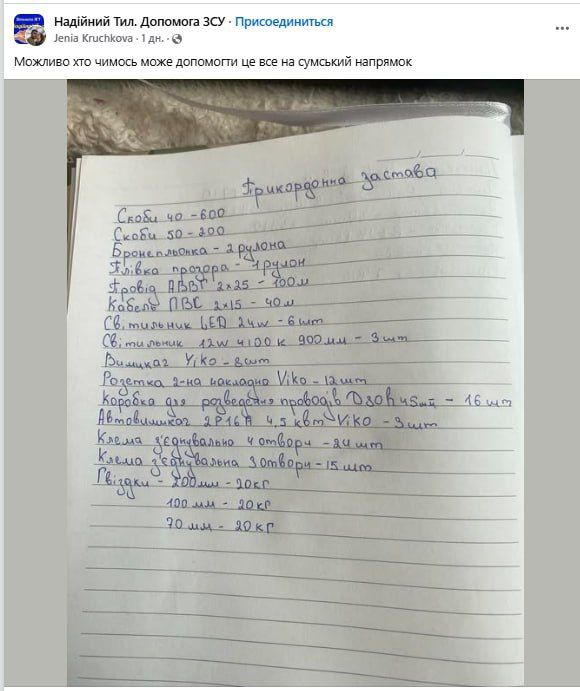 Надійний Тил. Допомога ЗСУ · Присоединиться
Jenia Kruchkova · 1 дн. ·
Можливо хто чимось може допомогти це все на сумський напрямок
Прикордонна застава
Скоби 40 - 600
Скоби 50 - 200
Бронепльонка - 2 рулона
Плівка прозора - 1 рулон
Провід АВВГ 2x25 - 100м
Кабель ПВС 2x15 - 40м
Світильник LED 24w - 6 шт
Світильник 12w 4100к 900мм - 3 шт
Вимикач Viko - 8шт
Розетка 2-на накладна Viko - 12 шт
Коробка для розведення проводів D80 h45мм - 16 шт
Автовимикач 2P16A 4,5 квт Viko - 3шт
Клема з'єднувальна 4 отвори - 24 шт
Клема з'єднувальна 3 отвори - 15 шт
Гвіздки - 200мм - 20кг
100 мм - 20кг
70 мм - 20кг